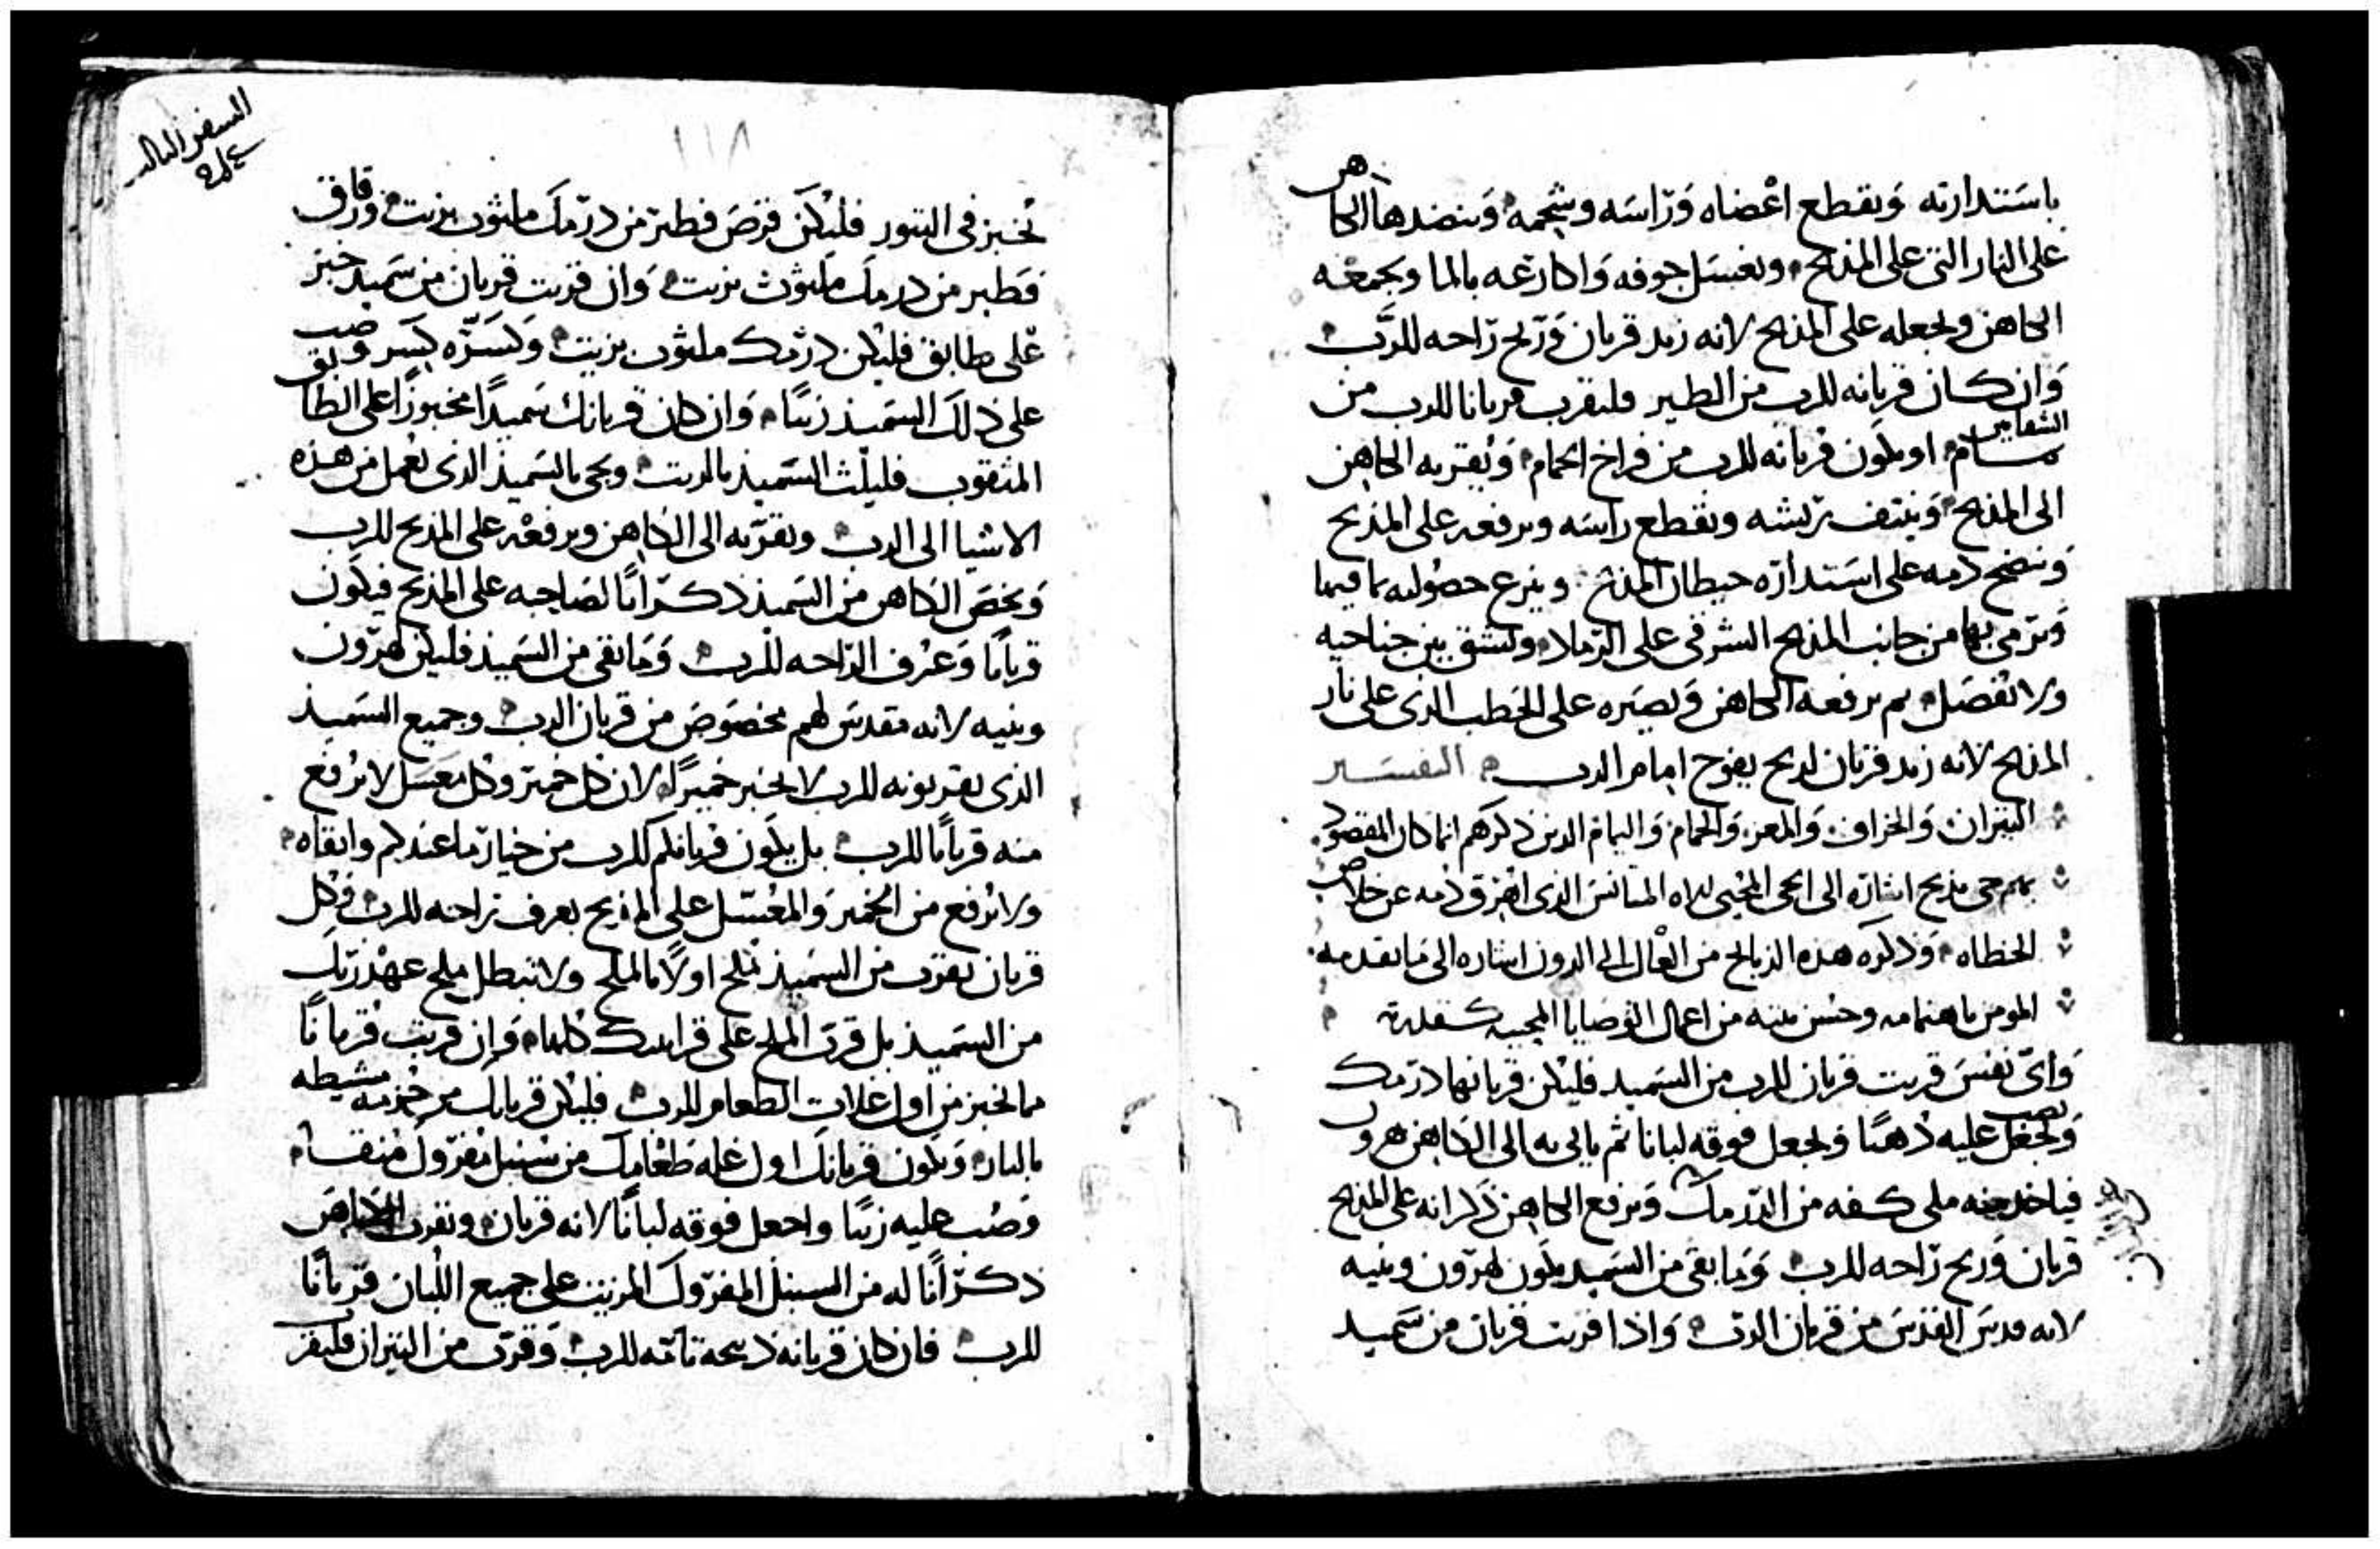 باستدارته ويقطع اعضاه وراسه وشحمه وينضدها الكاهن
على النار التى على المذبح ويغسل جوفه واكارعه بالما ويجمعه
الكاهن ويجعله على المذبح لانه زبد قربان وريح راحه للرب
وان كان قربانه للرب من الطير فليقرب قربانا للرب من
الشفانين او يكون قربانه للرب من فراخ الحمام ويقربه الكاهن
الى المذبح وينتف ريشه ويقطع راسه ويرفعه على المذبح
وينضح دمه على استداره حيطان المذبح وينزع حصوله بما فيها
ويرمى بها من جانب المذبح الشرقى على الرملاد ويشق بين جناحيه
ولا تفصل ثم يرفعه الكاهن ويصيره على الحطب الذى على نار
المذبح لانه زبد قربان لريح يفوح امام الرب التفسير
التيران والخراف والمعز والحمام واليمام الدين دكرهم انما كان المقصود
بهم حى مذبح اشاره الى الحى المحيى الذى اهرق دمه عن خلاص
الخطاه ودكره هذه الذبايح من العال الى الدون اشاره الى ما يقدمه
المومن باهتمامه وحسن نيته من اعمال الوصايا المحييه كنقلته
واى نفس قربت قربان للرب من السميد فليكن قربانها درمك
ويصب عليه دهنا ويجعل فوقه لبانا ثم ياتى به الى الكاهن هرون
فياخذ منه ملى كفه من الدرمك ويرفع الكاهن ذكرانه على المذبح
قربان وريح راحه للرب وما بقى من السميد يكون لهرون وبنيه
لانه قدس القدس من قربان الرب واذا قربت قربان من سميد
السفر التالت
١١٨
تخبز فى التنور فليكن قرص فطير من درمك ملثوث بزيت ورقاق
فطير من درمك ملثوث بزيت وان قربت قربان من سميد خبز
على طابق فليكن درمك ملثوث بزيت وكسره كسر وصب
على ذلك السميد زيتا وان كان قربانك سميدا مخبوزا على الطابق
المثقوب فليلث السميد بالزيت ويجى بالسميذ الذى يعمل من هذه
الاشيا الى الرب ويقربه الى الكاهن ويرفعه على المذبح للرب
ويخص الكاهن من السميذ ذكرانا لصاحبه على المذبح فيكون
قربانا وعرف الراحه للرب وما بقى من السميذ فليكن لهرون
وبنيه لانه مقدس لهم مخصوص من قربان الرب وجميع السميد
الذى يقربونه للرب لا يخبز خميرا لان كل خمير وكل معسل لا يرفع
منه قربانا للرب بل يكون قربانكم للرب من خيار ما عندكم وانقاه
ولا يرفع من الخمير والمعسل على المذبح بعرف راحه للرب وكل
قربان يقرب من السميذ يملح اولا بالملح ولا تبطل ملح عهد ربك
من السميذ بل قرب الملح على قرابينك كلها وان قربت قربانا
مما تخبز من اول غلات الطعام للرب فليكن قربانك من خبز مشيطه
بالنار ويكون قربانك اول غله طعامك من سنبل مفروك منقا
وصب عليه زيتا واجعل فوقه لبانا لانه قربان ويقرب الكاهن
ذكرانا له من السنبل المفروك المزيت على جميع اللبان قربانا
للرب فان كان قربانه ذبيحه تامه للرب وقرب من التيران فليقر